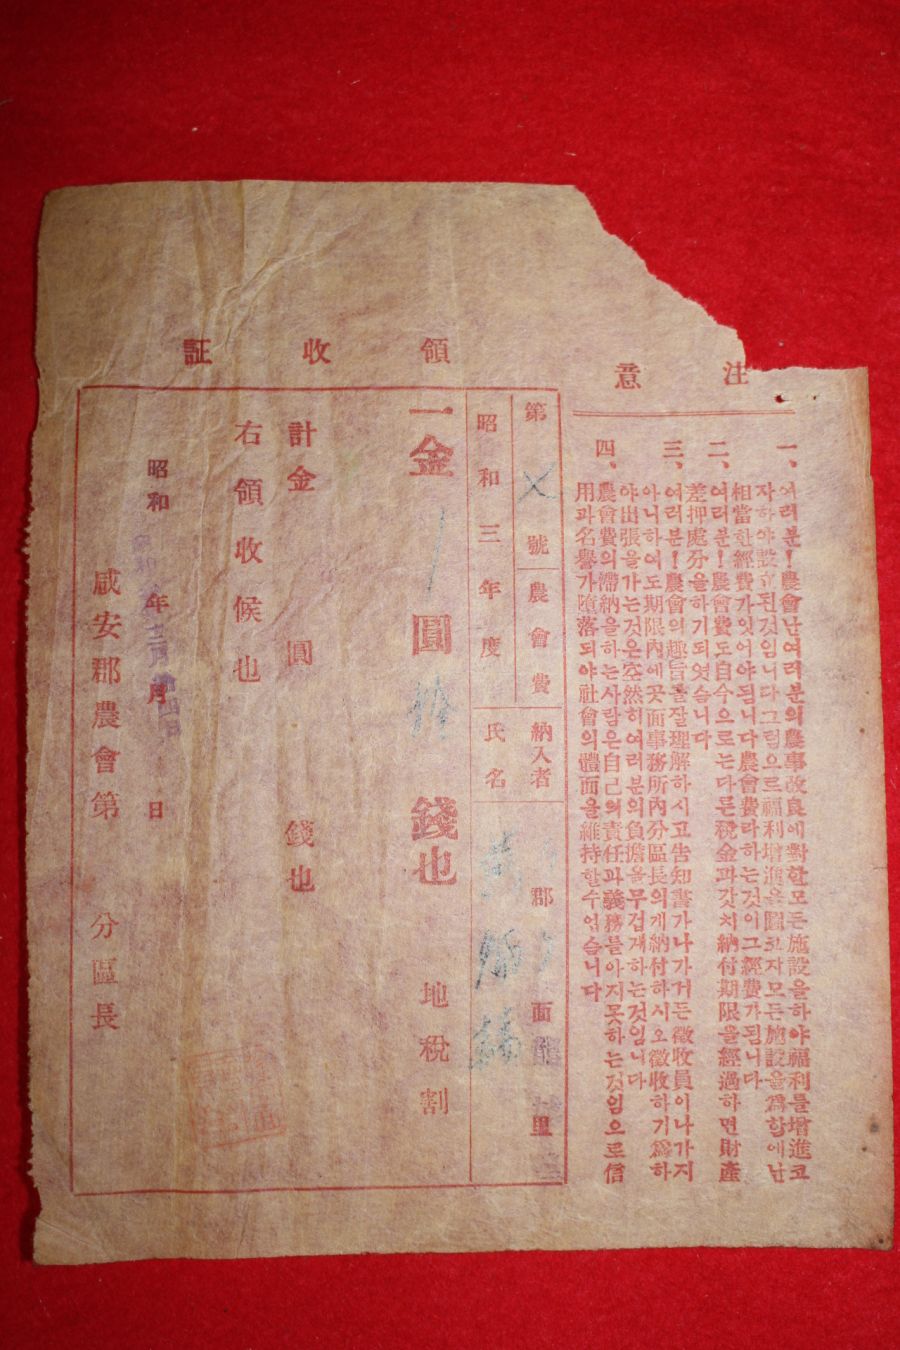 注意
一、여러분!農會난여러분의農事改良에對한모든施設을하야福利를增進코
자하야設立된것임니다그럼으로福利增進을圖코자모든施設을爲함에난
相當한經費가잇어야됨니다農會費라하는것이그經費가됨니다
二、여러분!農會費도自今으로는다른稅金과갓치納付期限을經過하면財產
差押處分을하기되엿슴니다
三、여러분!農會의趣旨를잘理解하시고告知書가나가거든徵收員이나가지
아니하여도期限內에곳面事務所內分區長의게納付하시오徵收하기爲하
야出張을가는것은空然히여러분의負擔을무겁게하는것임니다
四、農會費의滯納을하는사람은自己의責任과義務를아지못하는것임으로信
用과名譽가墮落되야社會의體面을維持할수업슴니다
領收証
第 號 農會費 納入者 郡 面 里
昭和三年度 氏名
一金 圓 錢也 地稅割
計金 圓 錢也
右領收候也
昭和 年 月 日
咸安郡農會第 分區長